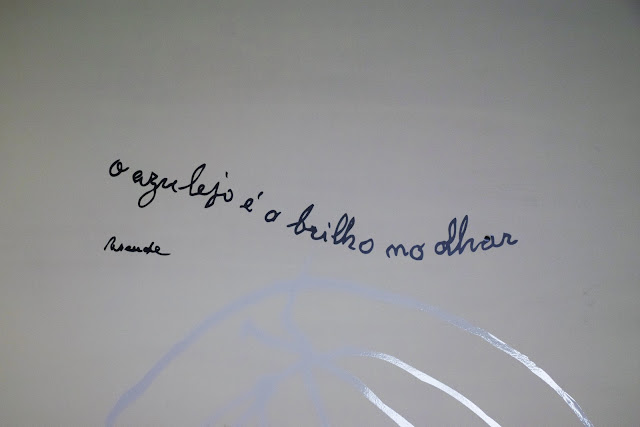 o azulejo é o brilho no olhar